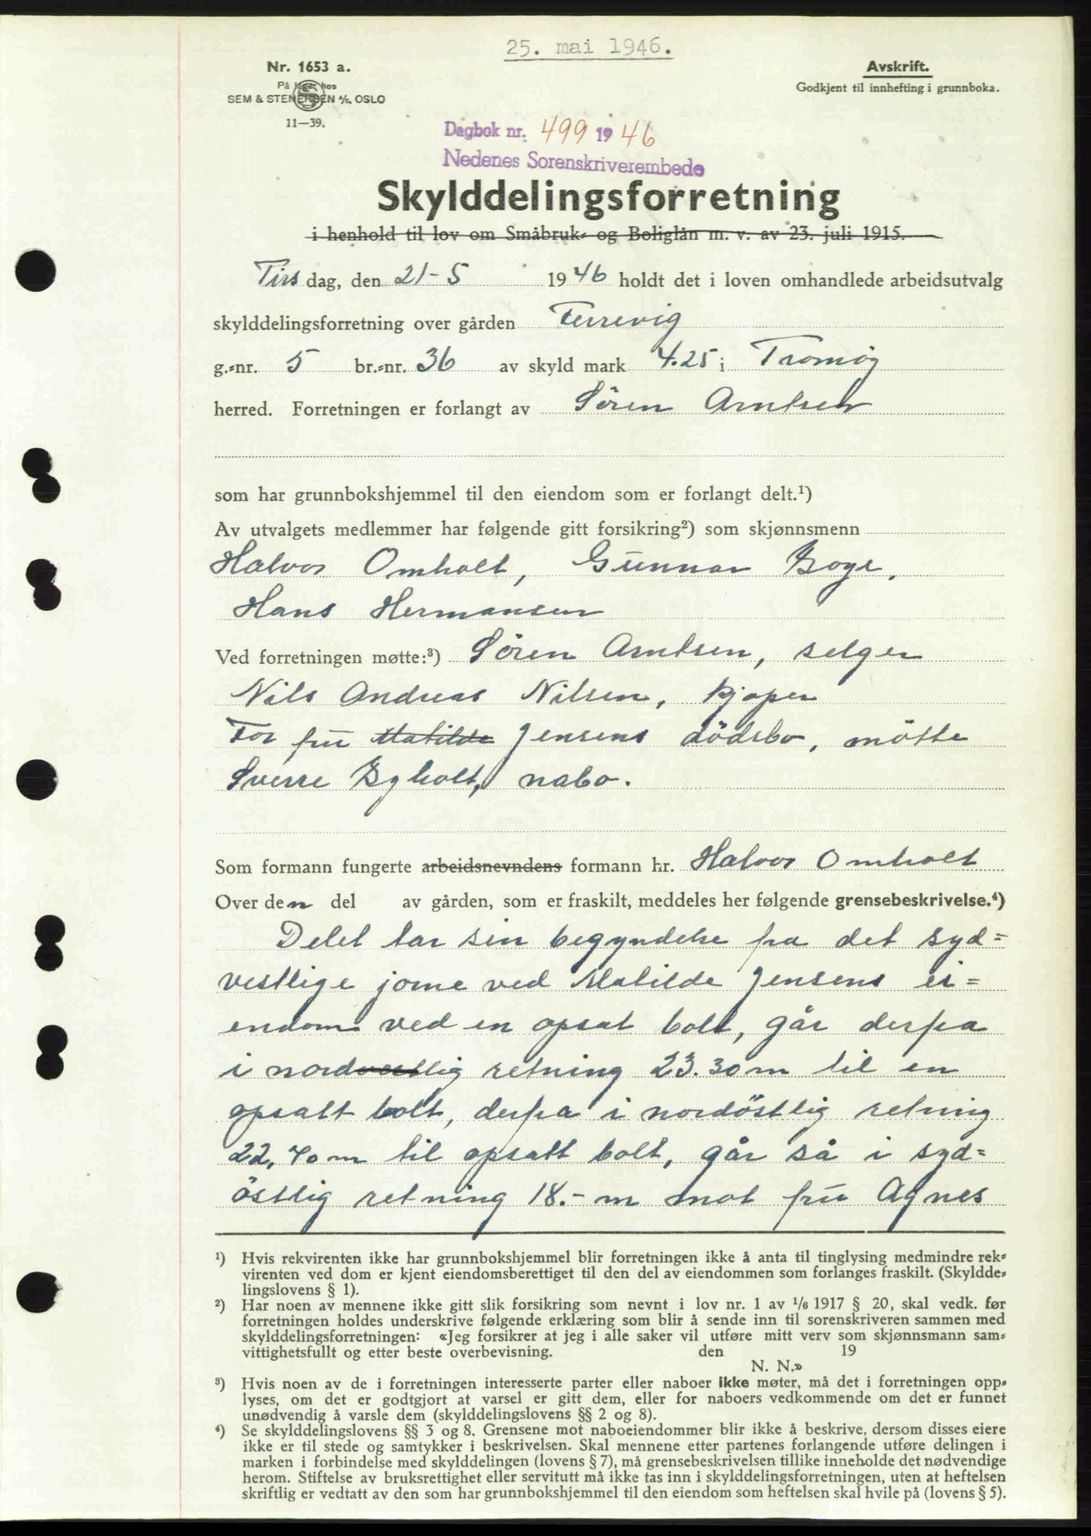 25. mai 1946.
Nr. 1653 a.
På lager hos
SEM & STENERSEN A/S, OSLO
11—39.
Avskrift.
Godkjent til innhefting i grunnboka.
Dagbok nr. 499 1946
Nedenes Sorenskriverembede
Skylddelingsforretning
i henhold til lov om Småbruk- og Boliglån m. v. av 23. juli 1915.
Tirsdag, den 21-5 1946 holdt det i loven omhandlede arbeidsutvalg
skylddelingsforretning over gården Færrevig
g.-nr. 5 br.-nr. 36 av skyld mark 4.25 i Tromøy
herred. Forretningen er forlangt av Sören Arntsen
som har grunnbokshjemmel til den eiendom som er forlangt delt.¹)
Av utvalgets medlemmer har følgende gitt forsikring²) som skjønnsmenn
Halvor Omholt, Gunnar Boye,
Hans Hermansen
Ved forretningen møtte:³) Sören Arntsen, selger
Nils Andreas Nilsen, kjøper
For fru Matilde Jensens dödsbo, mötte
Sverre Byholt, nabo.
Som formann fungerte arbeidsnevndens formann hr. Halvor Omholt
Over den del av gården, som er fraskilt, meddeles her følgende grensebeskrivelse.⁴)
Delet tar sin begyndelse fra det syd=
vestlige jorne ved Matilde Jensens ei=
endom ved en opsat bolt, går derfra
i nordvestlig retning 23.30 m til en
opsatt bolt, derfra i nordöstlig retning
22,40 m til opsatt bolt, går så i syd=
östlig retning 18.- m mot fru Agnes
¹) Hvis rekvirenten ikke har grunnbokshjemmel blir forretningen ikke å anta til tinglysing medmindre rek-
virenten ved dom er kjent eiendomsberettiget til den del av eiendommen som forlanges fraskilt. (Skyldde-
lingslovens § 1).
²) Har noen av mennene ikke gitt slik forsikring som nevnt i lov nr. 1 av 1/6 1917 § 20, skal vedk. før
forretningen holdes underskrive følgende erklæring som blir å sende inn til sorenskriveren sammen med
skylddelingsforretningen: «Jeg forsikrer at jeg i alle saker vil utføre mitt verv som skjønnsmann sam-
vittighetsfullt og etter beste overbevisning. den 19
N. N.»
³) Hvis noen av de i forretningen interesserte parter eller naboer ikke møter, må det i forretningen opp-
lyses, om det er godtgjort at varsel er gitt dem, eller for naboers vedkommende om det er funnet
unødvendig å varsle dem (skylddelingslovens §§ 2 og 8).
⁴) Se skylddelingslovens §§ 3 og 8. Grensene mot naboeiendommer blir ikke å beskrive, dersom disses eiere
ikke er til stede og samtykker i beskrivelsen. Skal mennene etter partenes forlangende utføre delingen i
marken i forbindelse med skylddelingen (lovens § 7), må grensebeskrivelsen tillike inneholde det nødvendige
herom. Stiftelse av bruksrettighet eller servitutt må ikke tas inn i skylddelingsforretningen, uten at heftelsen
skriftlig er vedtatt av den som har grunnbokshjemmel til den eiendom som heftelsen skal hvile på (lovens § 5).